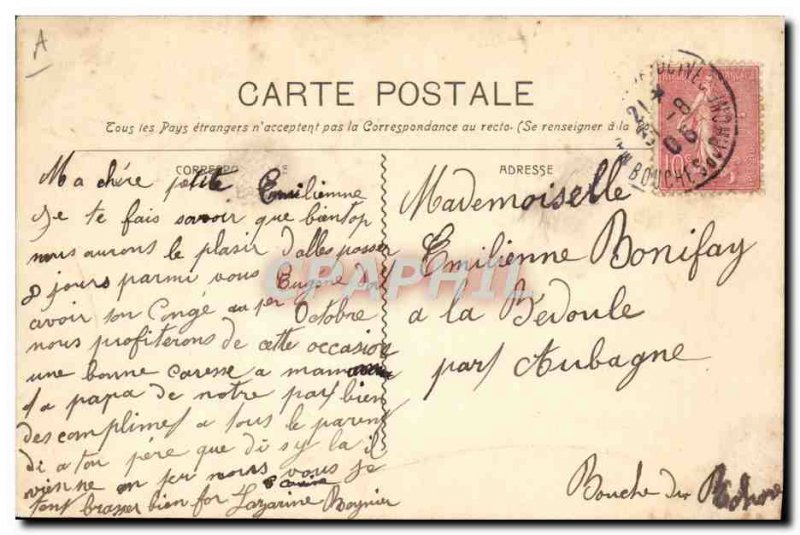 A
CARTE POSTALE
Tous les Pays étrangers n'acceptent pas la Correspondance au recto. (Se renseigner à la
CORRESPO
ADRESSE
Ma chére petite Emilienne
Je te fais savoir que bientop
nous aurons le plaisir d'alles passer
8 jours parmi vous Eugène
avoir son Congé au 1er Octobre
nous profiterons de cette occasion
une bonne caresse a maman
a papa de notre part bien
des compliments a tous le parent
di a ton père que di s'y la il
vienne un peu nous vous
embrasser bien for Lazarine Boynier
Mademoiselle
Emilienne Bonifay
a la Bédoule
par Aubagne
Bouche du Rhone
21
8
06
BOUCHES DU RHONE
10
CPAPHIL